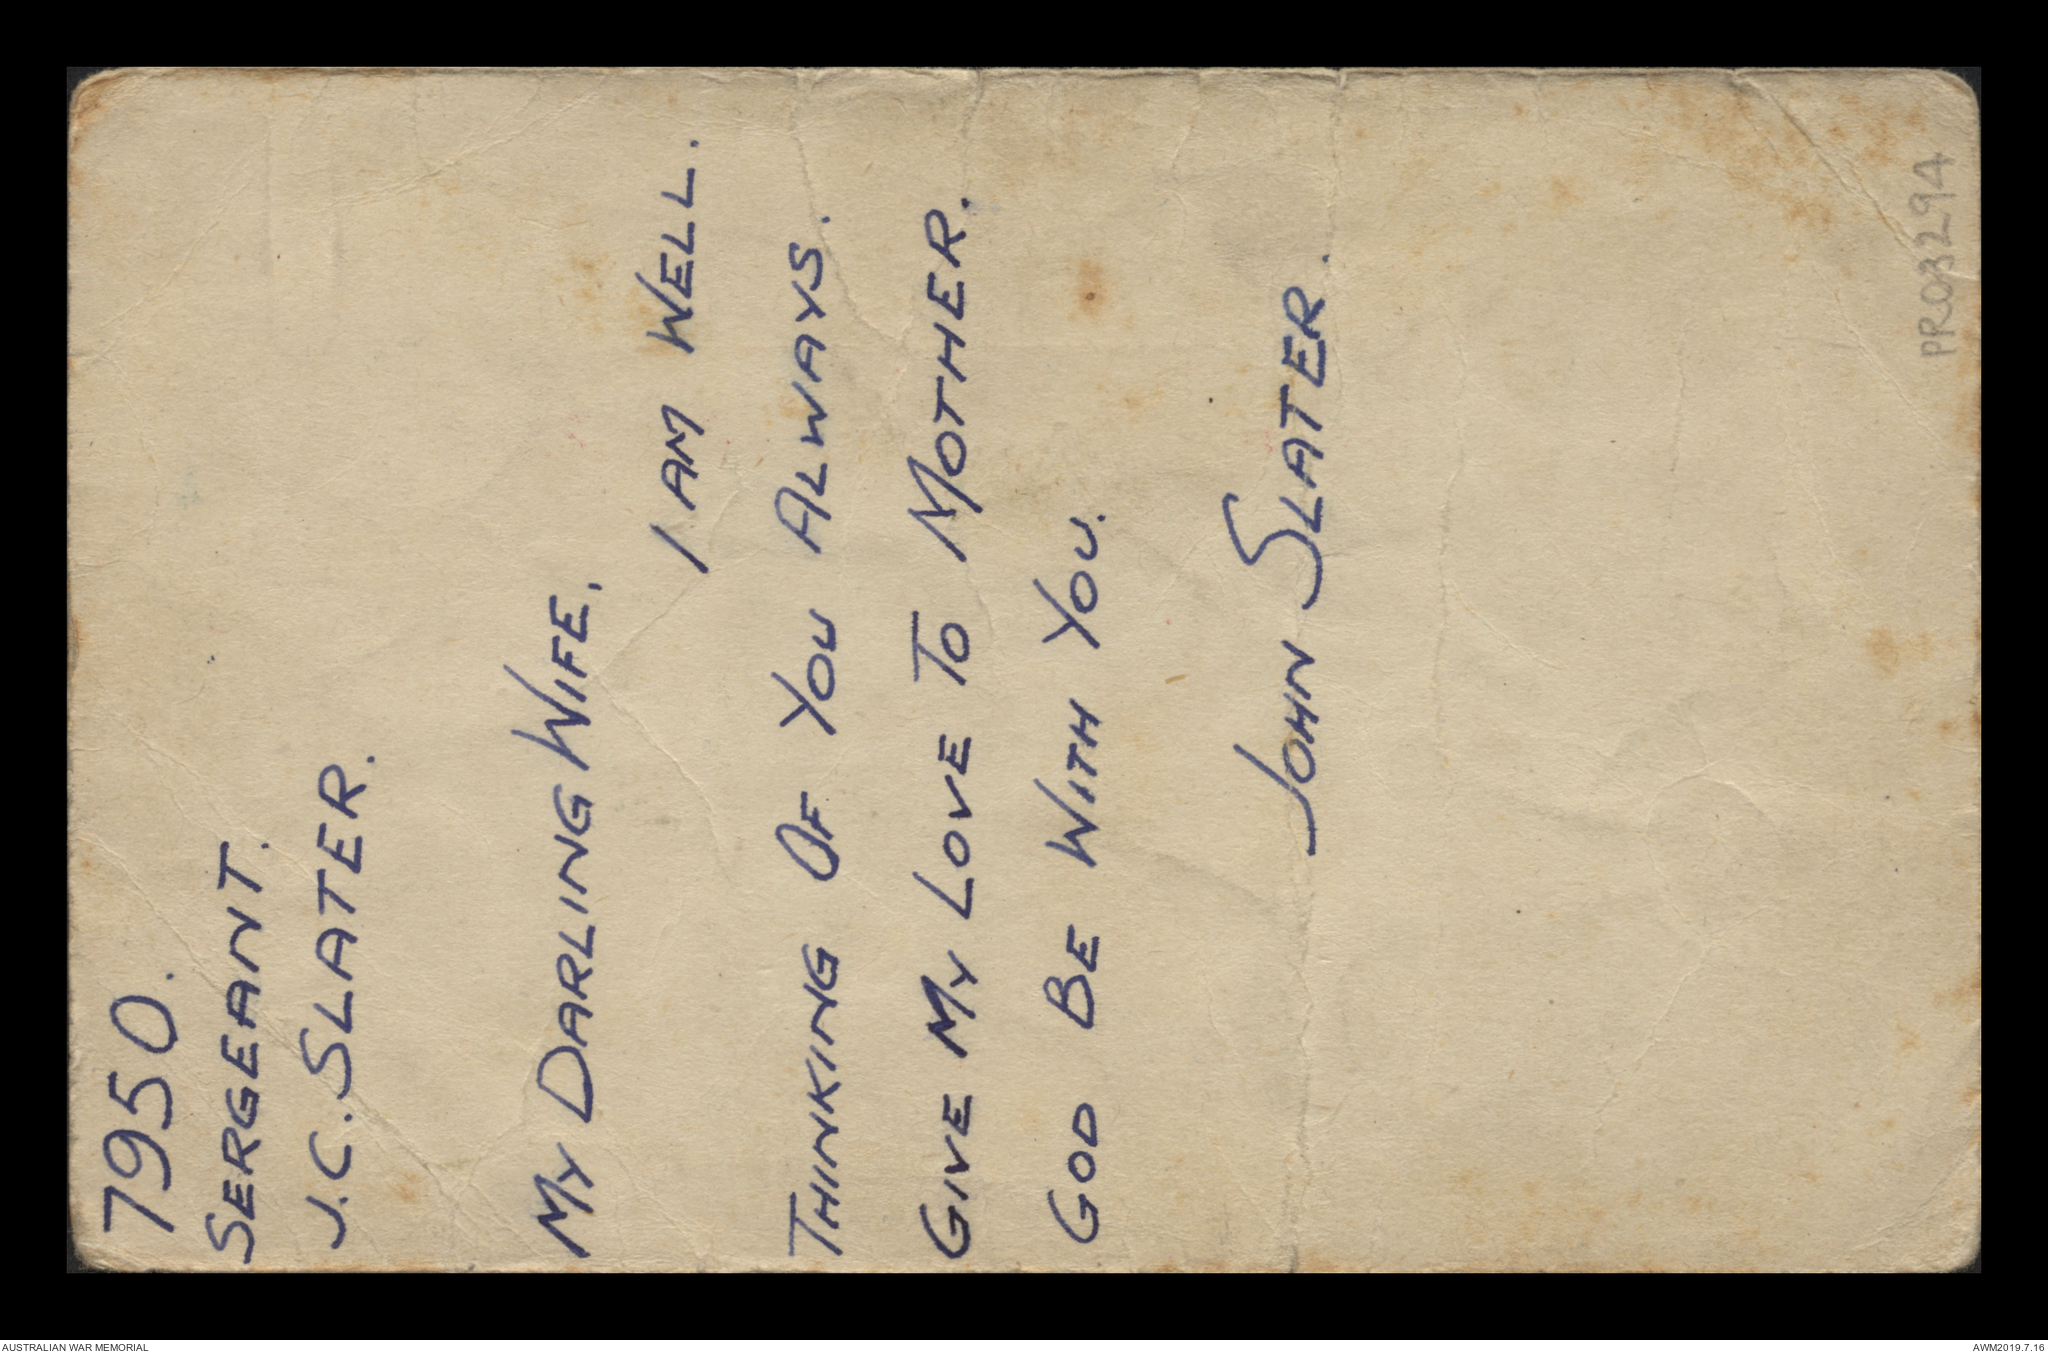 7950.
SERGEANT.
J.C. SLATER.
MY DARLING WIFE.
I AM WELL.
THINKING OF YOU ALWAYS.
GIVE MY LOVE TO MOTHER.
GOD BE WITH YOU.
JOHN SLATER.
PR03294
AUSTRALIAN WAR MEMORIAL
AWM2019.7.16